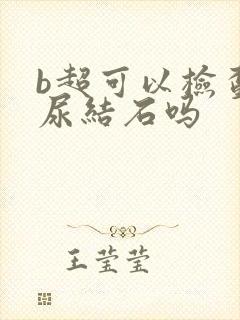 b超可以檢查
尿結石吗
王莹莹